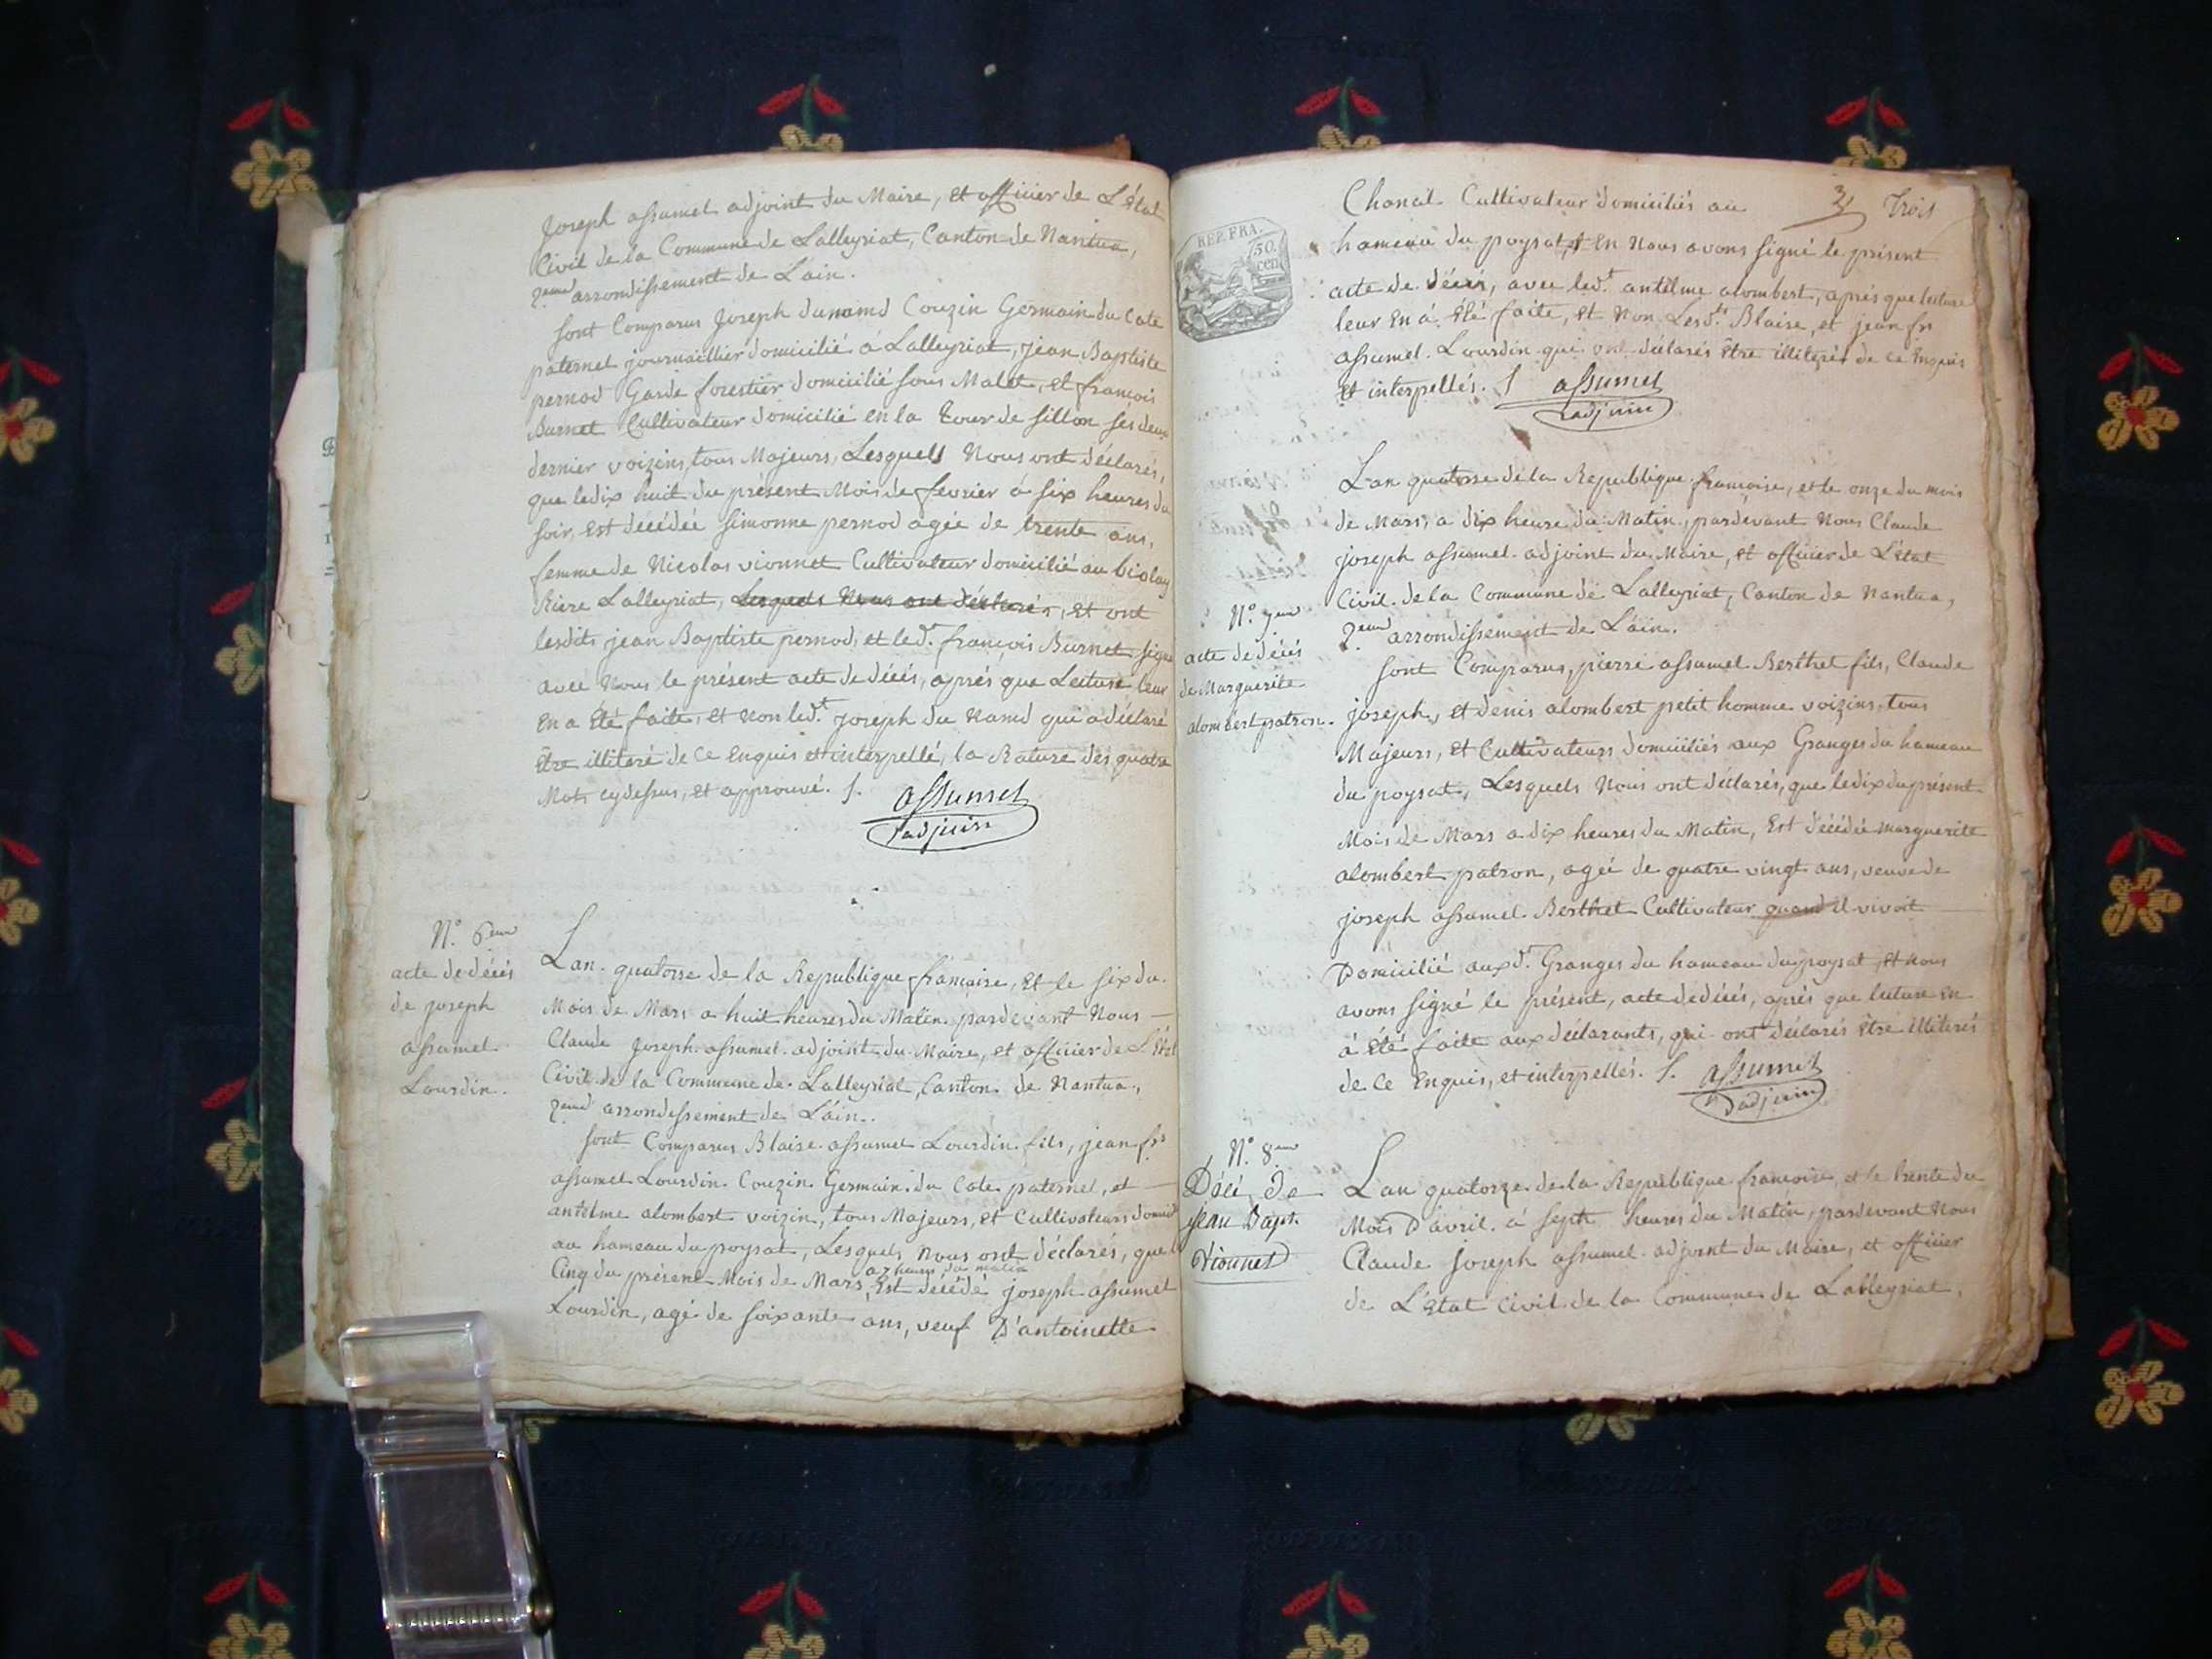 Joseph assumel adjoint du Maire, et officier de L'état
Civil de la Commune de Lalleyriat, Canton de Nantua,
2eme arrondissement de L'ain.
sont Comparus Joseph dunamd Couzin Germain du Cote
paternel journaillier domicilié a Lalleyriat, jean Baptiste
pernod Garde forestier domicilié sous Malet, et francois
Burnet Cultivateur domicilié en la tour de sillon ses deux
dernier voizins, tous Majeurs, Lesquels Nous ont déclarés,
que le dix huit du présent Mois de fevrier a six heures du
soir, est décédée simonne pernod agée de trente ans,
femme de Nicolas vionnet Cultivateur domicilié au biolay
Riere Lalleyriat, Lesquels Nous ont déclarés, et ont
lesdits jean Baptiste pernod, et led.t françois Burnet signé
avec Nous le présent acte de décés, aprés que Lecture leur
en a Été faite, et Non led.t joseph du Namd qui a déclaré
Être illiteré de Ce Enquis et interpellé, la Rature des quatre
Mots cy dessus, et approuvé. f. assumel
adjoin
N.o 6eme
acte de décés
de joseph
assumel
Lourdin.
Lan quatorse de la Republique françaire, Et le six du
Mois de Mars a huit heures du Matin pardevant Nous
Claude Joseph assumel adjoint du Maire, et officier de L'Etat
Civil de la Commune de Lalleyriat, Canton de Nantua,
2eme arrondissement de L'ain.
sont Comparus Blaise assumel Lourdin fils, jean f.s
assumel Lourdin Couzin Germain du Cote paternel, et
antelme alombert voizin, tous Majeurs, et Cultivateurs domicil
au hameau du poysat, Lesquels Nous ont déclarés, que
a 7 heures du matin
Cinq du présent Mois de Mars, Est décédé joseph assumel
Lourdin, agé de soixante ans, veuf D'antoinette
3 Trois
REP. FRA.
50 cen
Chanal Cultivateur domiciliés au
hameau du poysat, et En Nous avons signé le présent
acte de décés, avec led.t antelme alombert, aprés que lecture
leur En á Été faite, Et Non Lesd.ts Blaise, et jean fs
assumel Lourdin qui ont déclarés Être illiterés de Ce Enquis
Et interpellés. f assumel
adjoin
Lan quatorse de la Republique françoise, et le onze du mois
de Mars, a dix heure du Matin, pardevant Nous Claude
joseph assumel adjoint du Maire, et officier de L'état
Civil de la Commune de Lalleyriat, Canton de Nantua,
2eme arrondissement de L'ain.
N.o 7eme
acte de décés
de Marguerite
alombert patron.
sont Comparus, pierre assumel Berthet fils, Claude
joseph, et denis alombert petit homme voizins, tous
Majeurs, Et Cultivateurs domiciliés aux Granges du hameau
du poysat, Lesquels Nous ont déclarés, que le dix du présent
Mois de Mars a dix heures du Matin, Est décédée marguerite
alombert patron, agée de quatre vingt ans, veuve de
joseph assumel Berthet Cultivateur quand il vivoit
Domicilié aux d.t Granges du hameau du poysat, et nous
avons signé le présent, acte de décés, aprés que lecture en
á Été faite aux déclarants, qui ont déclarés Être illiterés
de Ce Enquis, et interpellés. f. assumel
adjoin
N.o 8eme
Décé de
jean Bapt.
Vionnet
Lan quatorze de la Republique françoise, et le trente du
Mois D'avril á sept heures du Matin, pardevant Nous
Claude joseph assumel adjoint du Maire, et officier
de L'Etat Civil de la Commune de Lalleyriat,